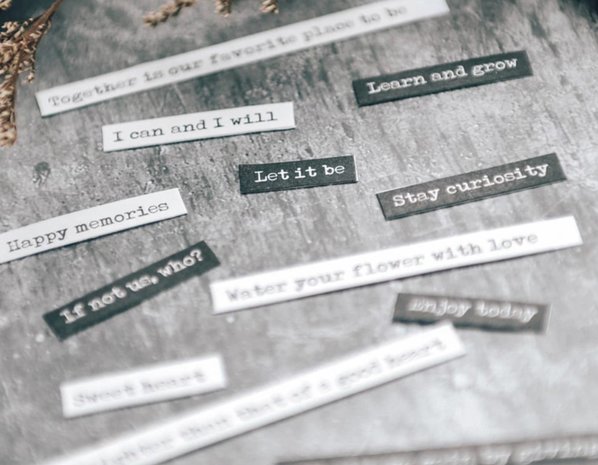 Together is our favorite place to be
Learn and grow
I can and I will
Let it be
Stay curiosity
Happy memories
If not us, who?
Water your flower with love
Enjoy today
Sweet heart
than that of a good heart
by giving